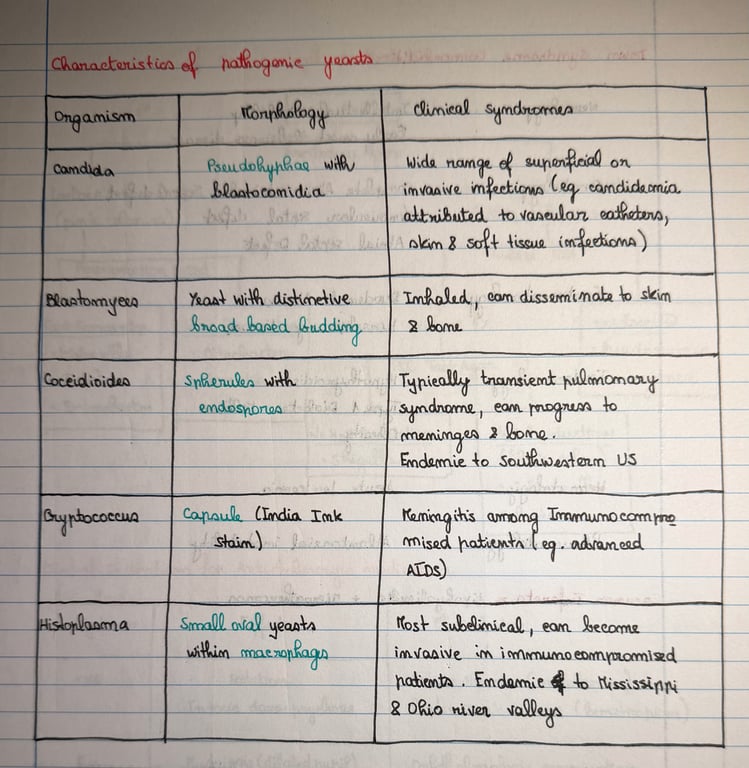 Characteristics of pathogenic yeasts
Organism
Morphology
Clinical syndromes
Candida
Pseudohyphae with
blastoconidia
Wide range of superficial or
invasive infections (eg candidemia
attributed to vascular catheters,
skin & soft tissue infections)
Blastomyces
Yeast with distinctive
broad based budding
Inhaled, can disseminate to skin
& bone
Coccidioides
Spherules with
endospores
Typically transient pulmonary
syndrome, can progress to
meninges & bone.
Endemic to southwestern US
Cryptococcus
Capsule (India Ink
stain)
Meningitis among Immunocompro
mised patients (eg. advanced
AIDS)
Histoplasma
Small oval yeasts
within macrophages
Most subclinical, can become
invasive in immunocompromised
patients. Endemic to Mississippi
& Ohio river valleys